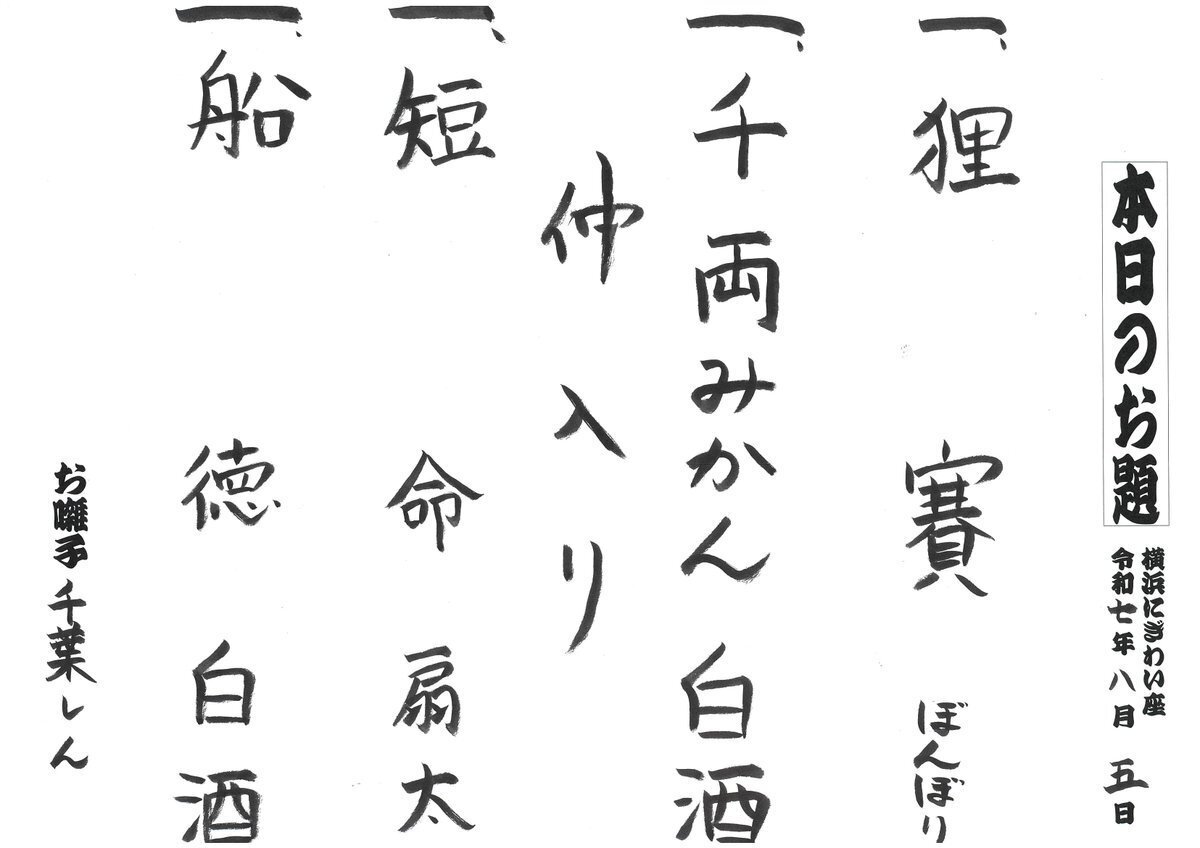 本日のお題
横浜にぎわい座
令和七年八月五日
一、狸賽 ぼんぼり
一、千両みかん 白酒
仲入り
一、短命 扇太
一、船徳 白酒
お囃子 千葉しん